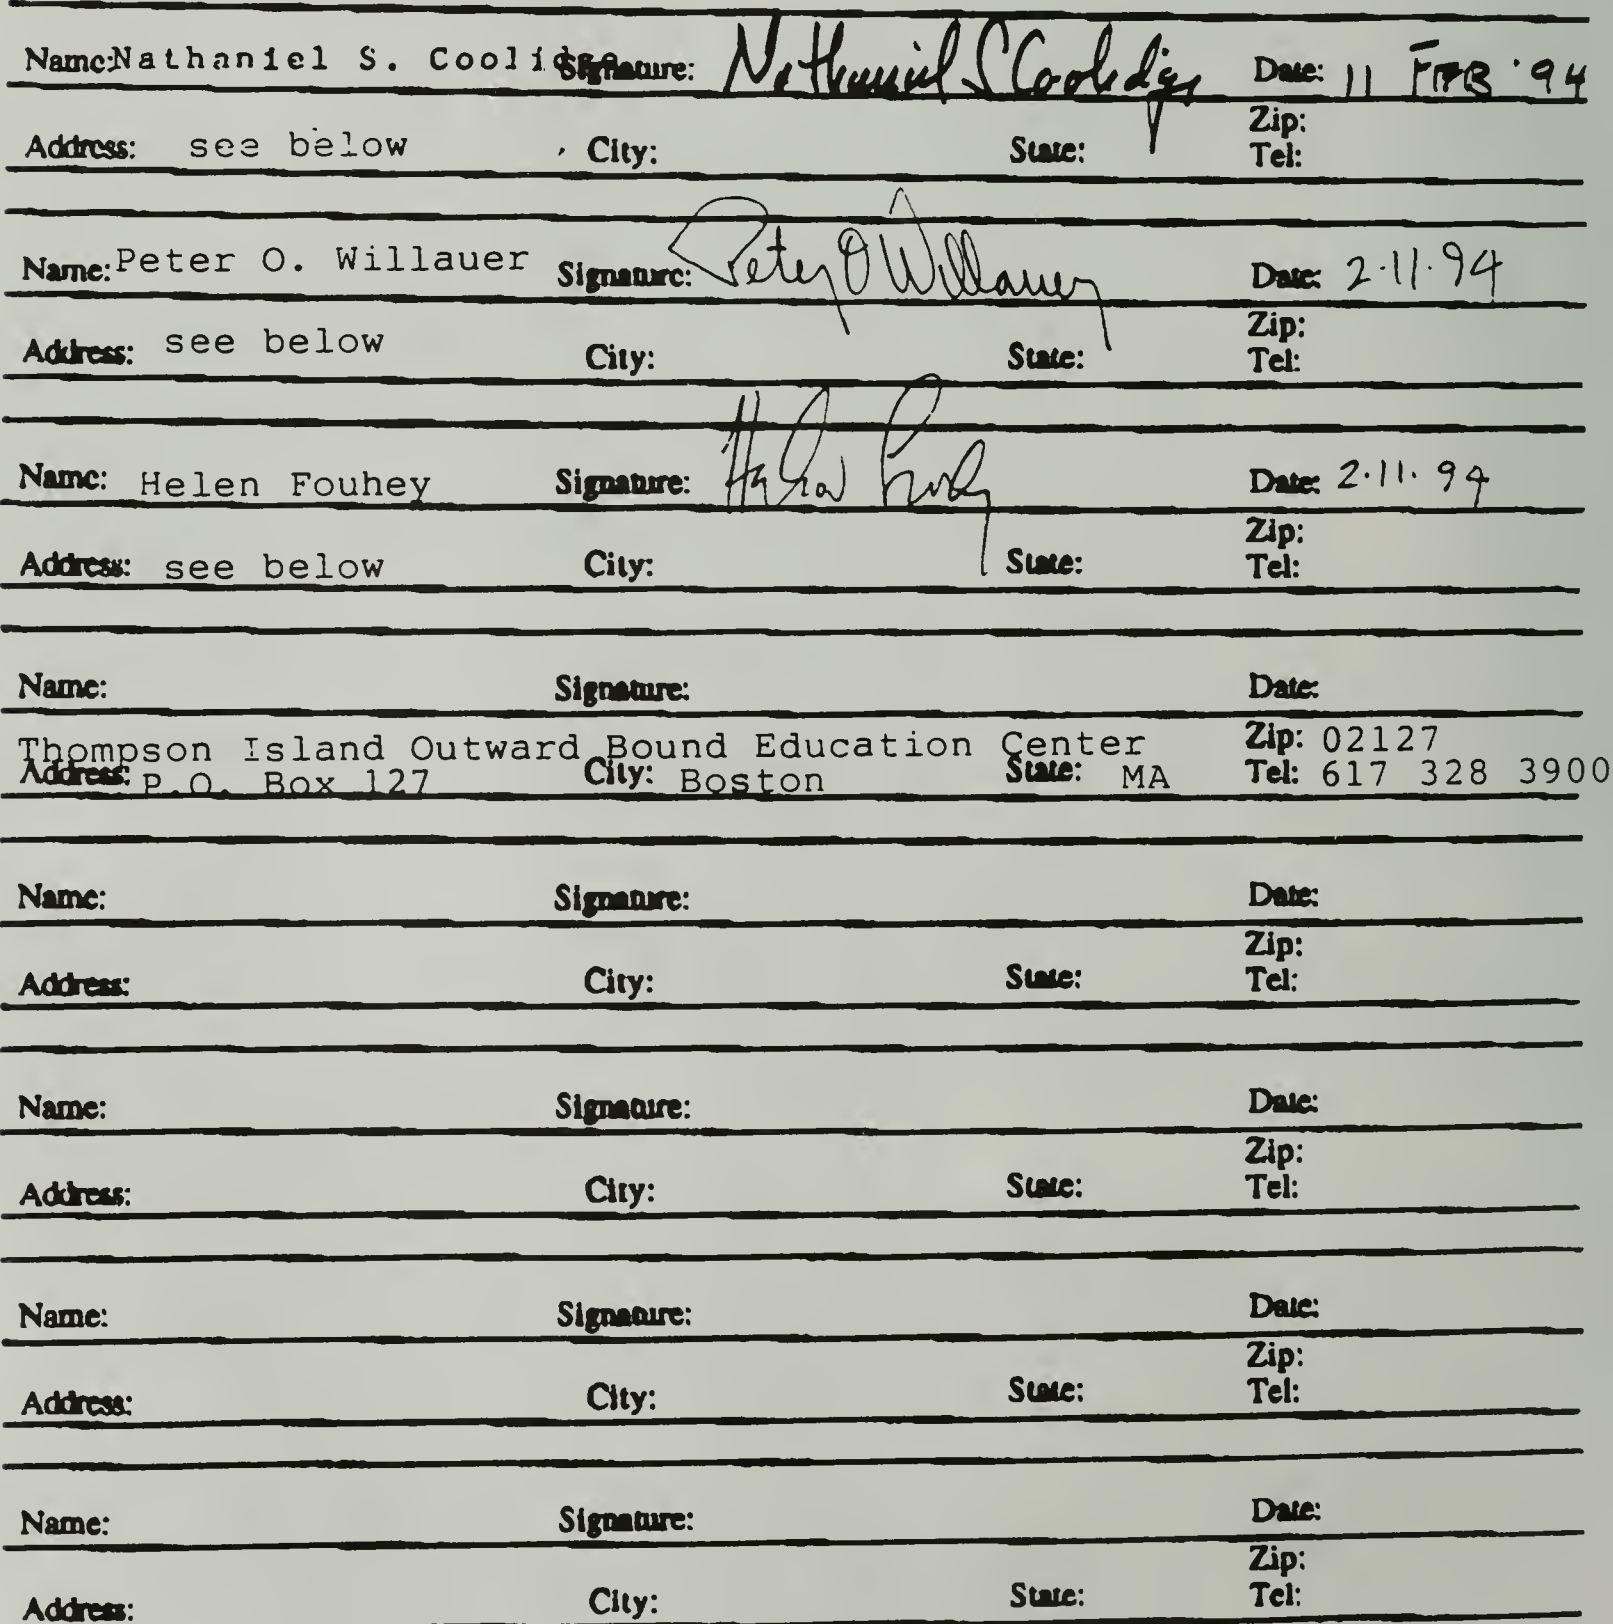 Name: Nathaniel S. Coolidge Signature: Nathaniel S Coolidge Date: 11 FEB '94
Zip:
Address: see below City: State: Tel:
Name: Peter O. Willauer Signature: Peter O Willauer Date: 2.11.94
Zip:
Address: see below City: State: Tel:
Name: Helen Fouhey Signature: Date: 2.11.94
Zip:
Address: see below City: State: Tel:
Name: Signature: Date:
Thompson Island Outward Bound Education Center Zip: 02127
Address: P.O. Box 127 City: Boston State: MA Tel: 617 328 3900
Name: Signature: Date:
Zip:
Address: City: State: Tel:
Name: Signature: Date:
Zip:
Address: City: State: Tel:
Name: Signature: Date:
Zip:
Address: City: State: Tel:
Name: Signature: Date:
Zip:
Address: City: State: Tel: